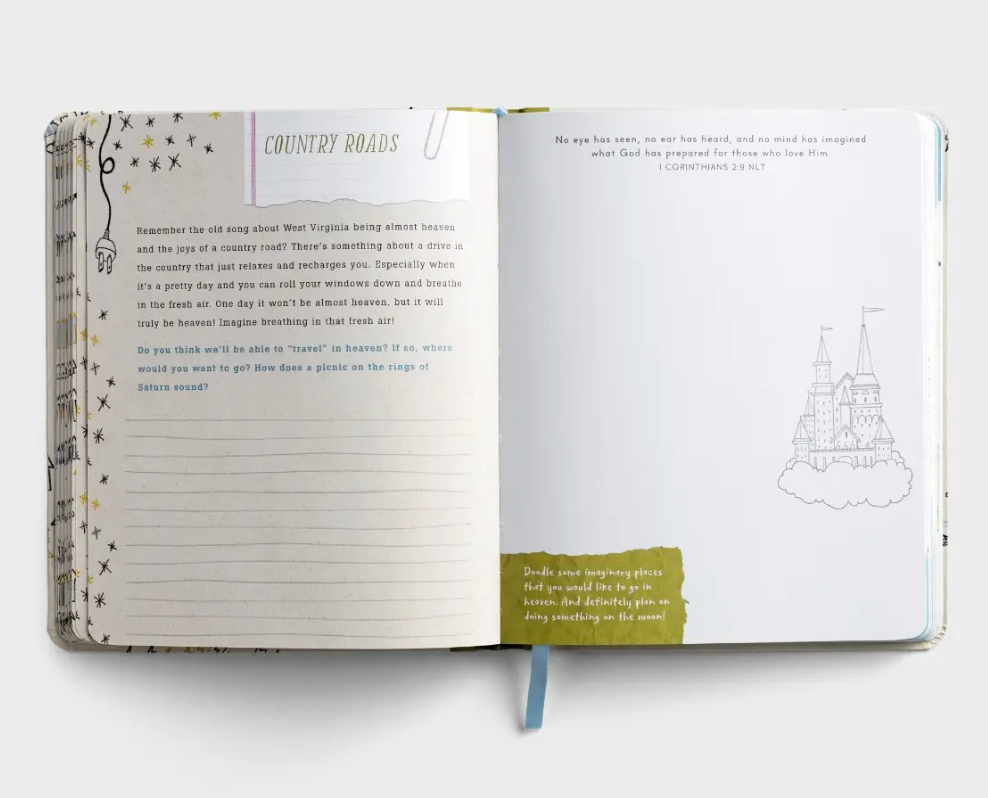 COUNTRY ROADS
Remember the old song about West Virginia being almost heaven
and the joys of a country road? There's something about a drive in
the country that just relaxes and recharges you. Especially when
it's a pretty day and you can roll your windows down and breathe
in the fresh air. One day it won't be almost heaven, but it will
truly be heaven! Imagine breathing in that fresh air!
Do you think we'll be able to "travel" in heaven? If so, where
would you want to go? How does a picnic on the rings of
Saturn sound?
No eye has seen, no ear has heard, and no mind has imagined
what God has prepared for those who love Him.
I CORINTHIANS 2:9 NLT
Doodle some imaginary places
that you would like to go in
heaven. And definitely plan on
doing something on the moon!